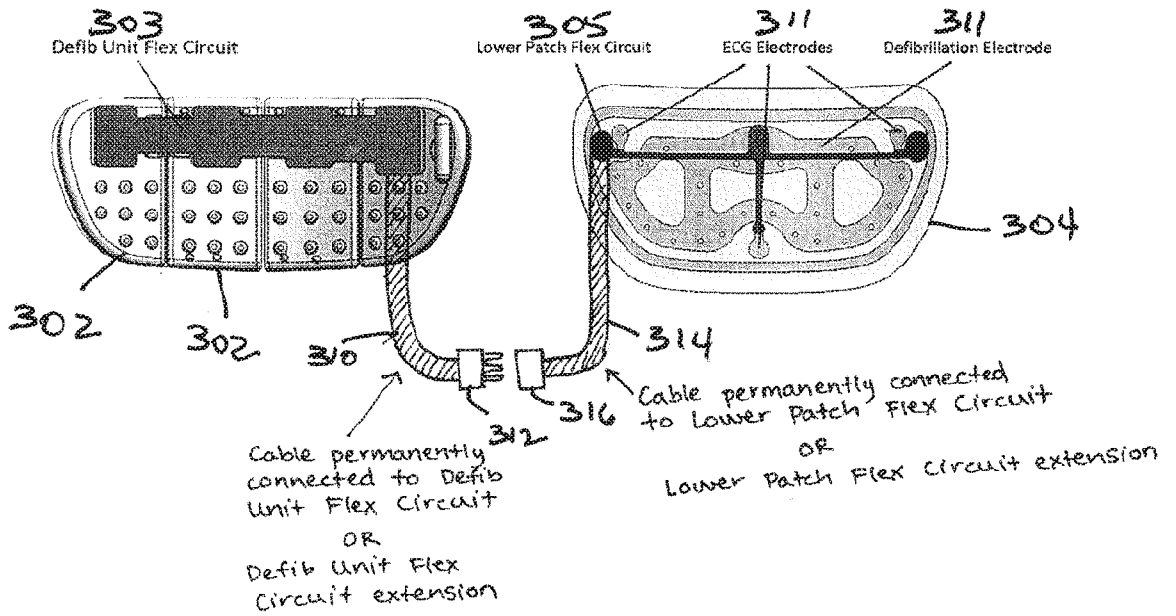 303
Defib Unit Flex Circuit
305
Lower Patch Flex Circuit
311
ECG Electrodes
311
Defibrillation Electrode
304
302
302
310
312
316
314
Cable permanently
connected to Defib
Unit Flex Circuit
OR
Defib Unit Flex
Circuit extension
Cable permanently connected
to Lower Patch Flex Circuit
OR
Lower Patch Flex Circuit extension